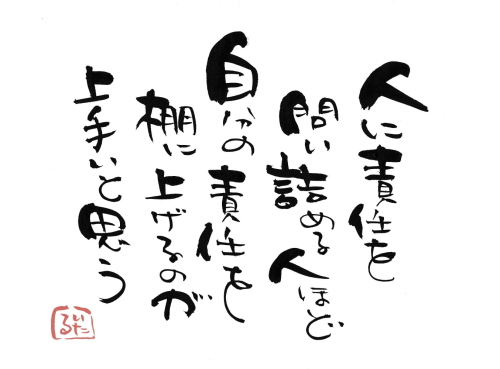 人に責任を
問い詰める人ほど
自分の責任を
棚に上げるのが
上手いと思う